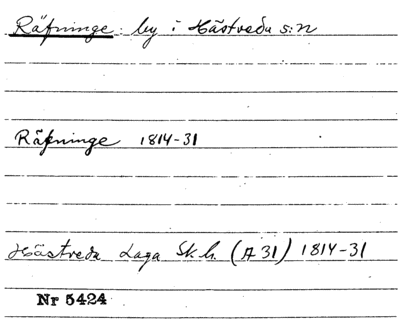 Räfninge: by i Hästveda s:n
Räfninge 1814-31
Hästveda Laga Sk.h. (A 31) 1814-31
Nr 5424